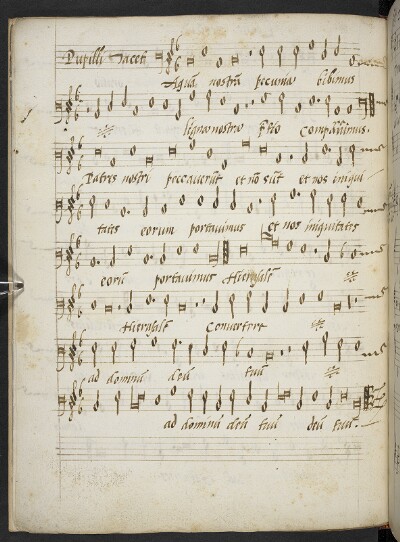 Pupilli Tacet
Aquã nostrã pecunia bibimus
ligna nostra p̃tio Comparauimus.
Patres nostri peccauerũt et nõ sũt et nos iniqui-
tates eorum portauimus et nos iniquitates
eorũ portauimus Hierusalẽ
Hierusalẽ Conuertere
ad dominũ deũ tuũ
ad dominũ deũ tuũ deũ tuũ.